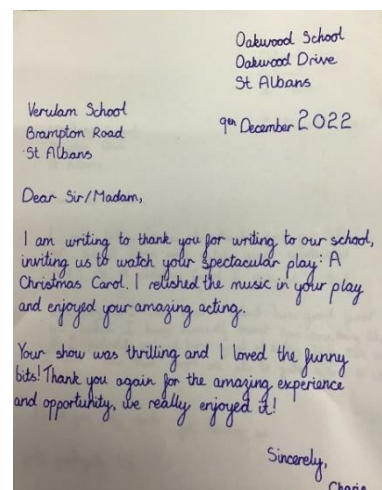 Oakwood School
Oakwood Drive
St Albans
Verulam School
Brampton Road
St Albans
9th December 2022
Dear Sir/Madam,
I am writing to thank you for writing to our school,
inviting us to watch your spectacular play: A
Christmas Carol. I relished the music in your play
and enjoyed your amazing acting.
Your show was thrilling and I loved the funny
bits! Thank you again for the amazing experience
and opportunity, we really enjoyed it!
Sincerely,